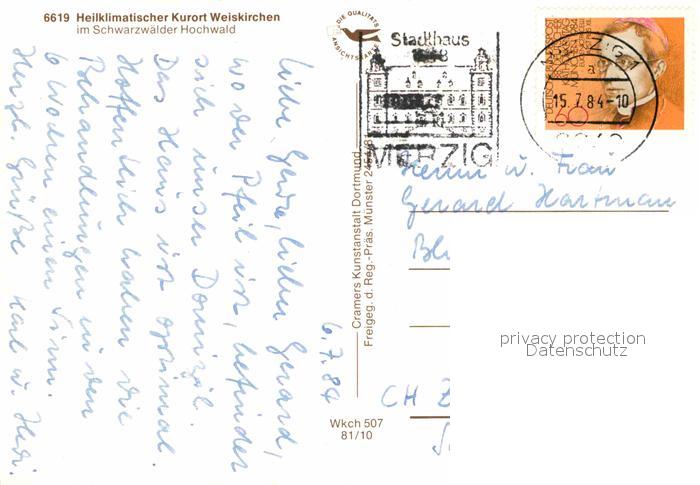 6619 Heilklimatischer Kurort Weiskirchen
im Schwarzwälder Hochwald
DIE QUALITÄTS
ANSICHTSKARTE
6.7.84
Liebe Gerda, lieber Gerard,
wo der Pfeil ist, befindet
sich unser Domizil.
Das Haus ist optimal.
Hoffentlich haben die
Behandlungen in den
6 Wochen einen Sinn.
Herzl. Grüße Karl u. Hedi.
Cramers Kunstanstalt Dortmund
Freigeg. d. Reg.-Präs. Münster
Wkch 507
81/10
Stadthaus
MERZIG
MERZIG 1
a
15.7.84-10
60
Herrn u. Frau
Gerard Hartman
CH
privacy protection
Datenschutz